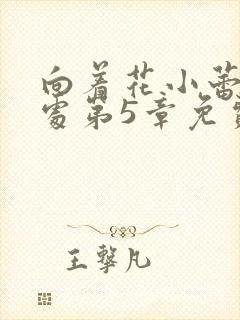 向着花小蕾
处第5章免费
王擎凡